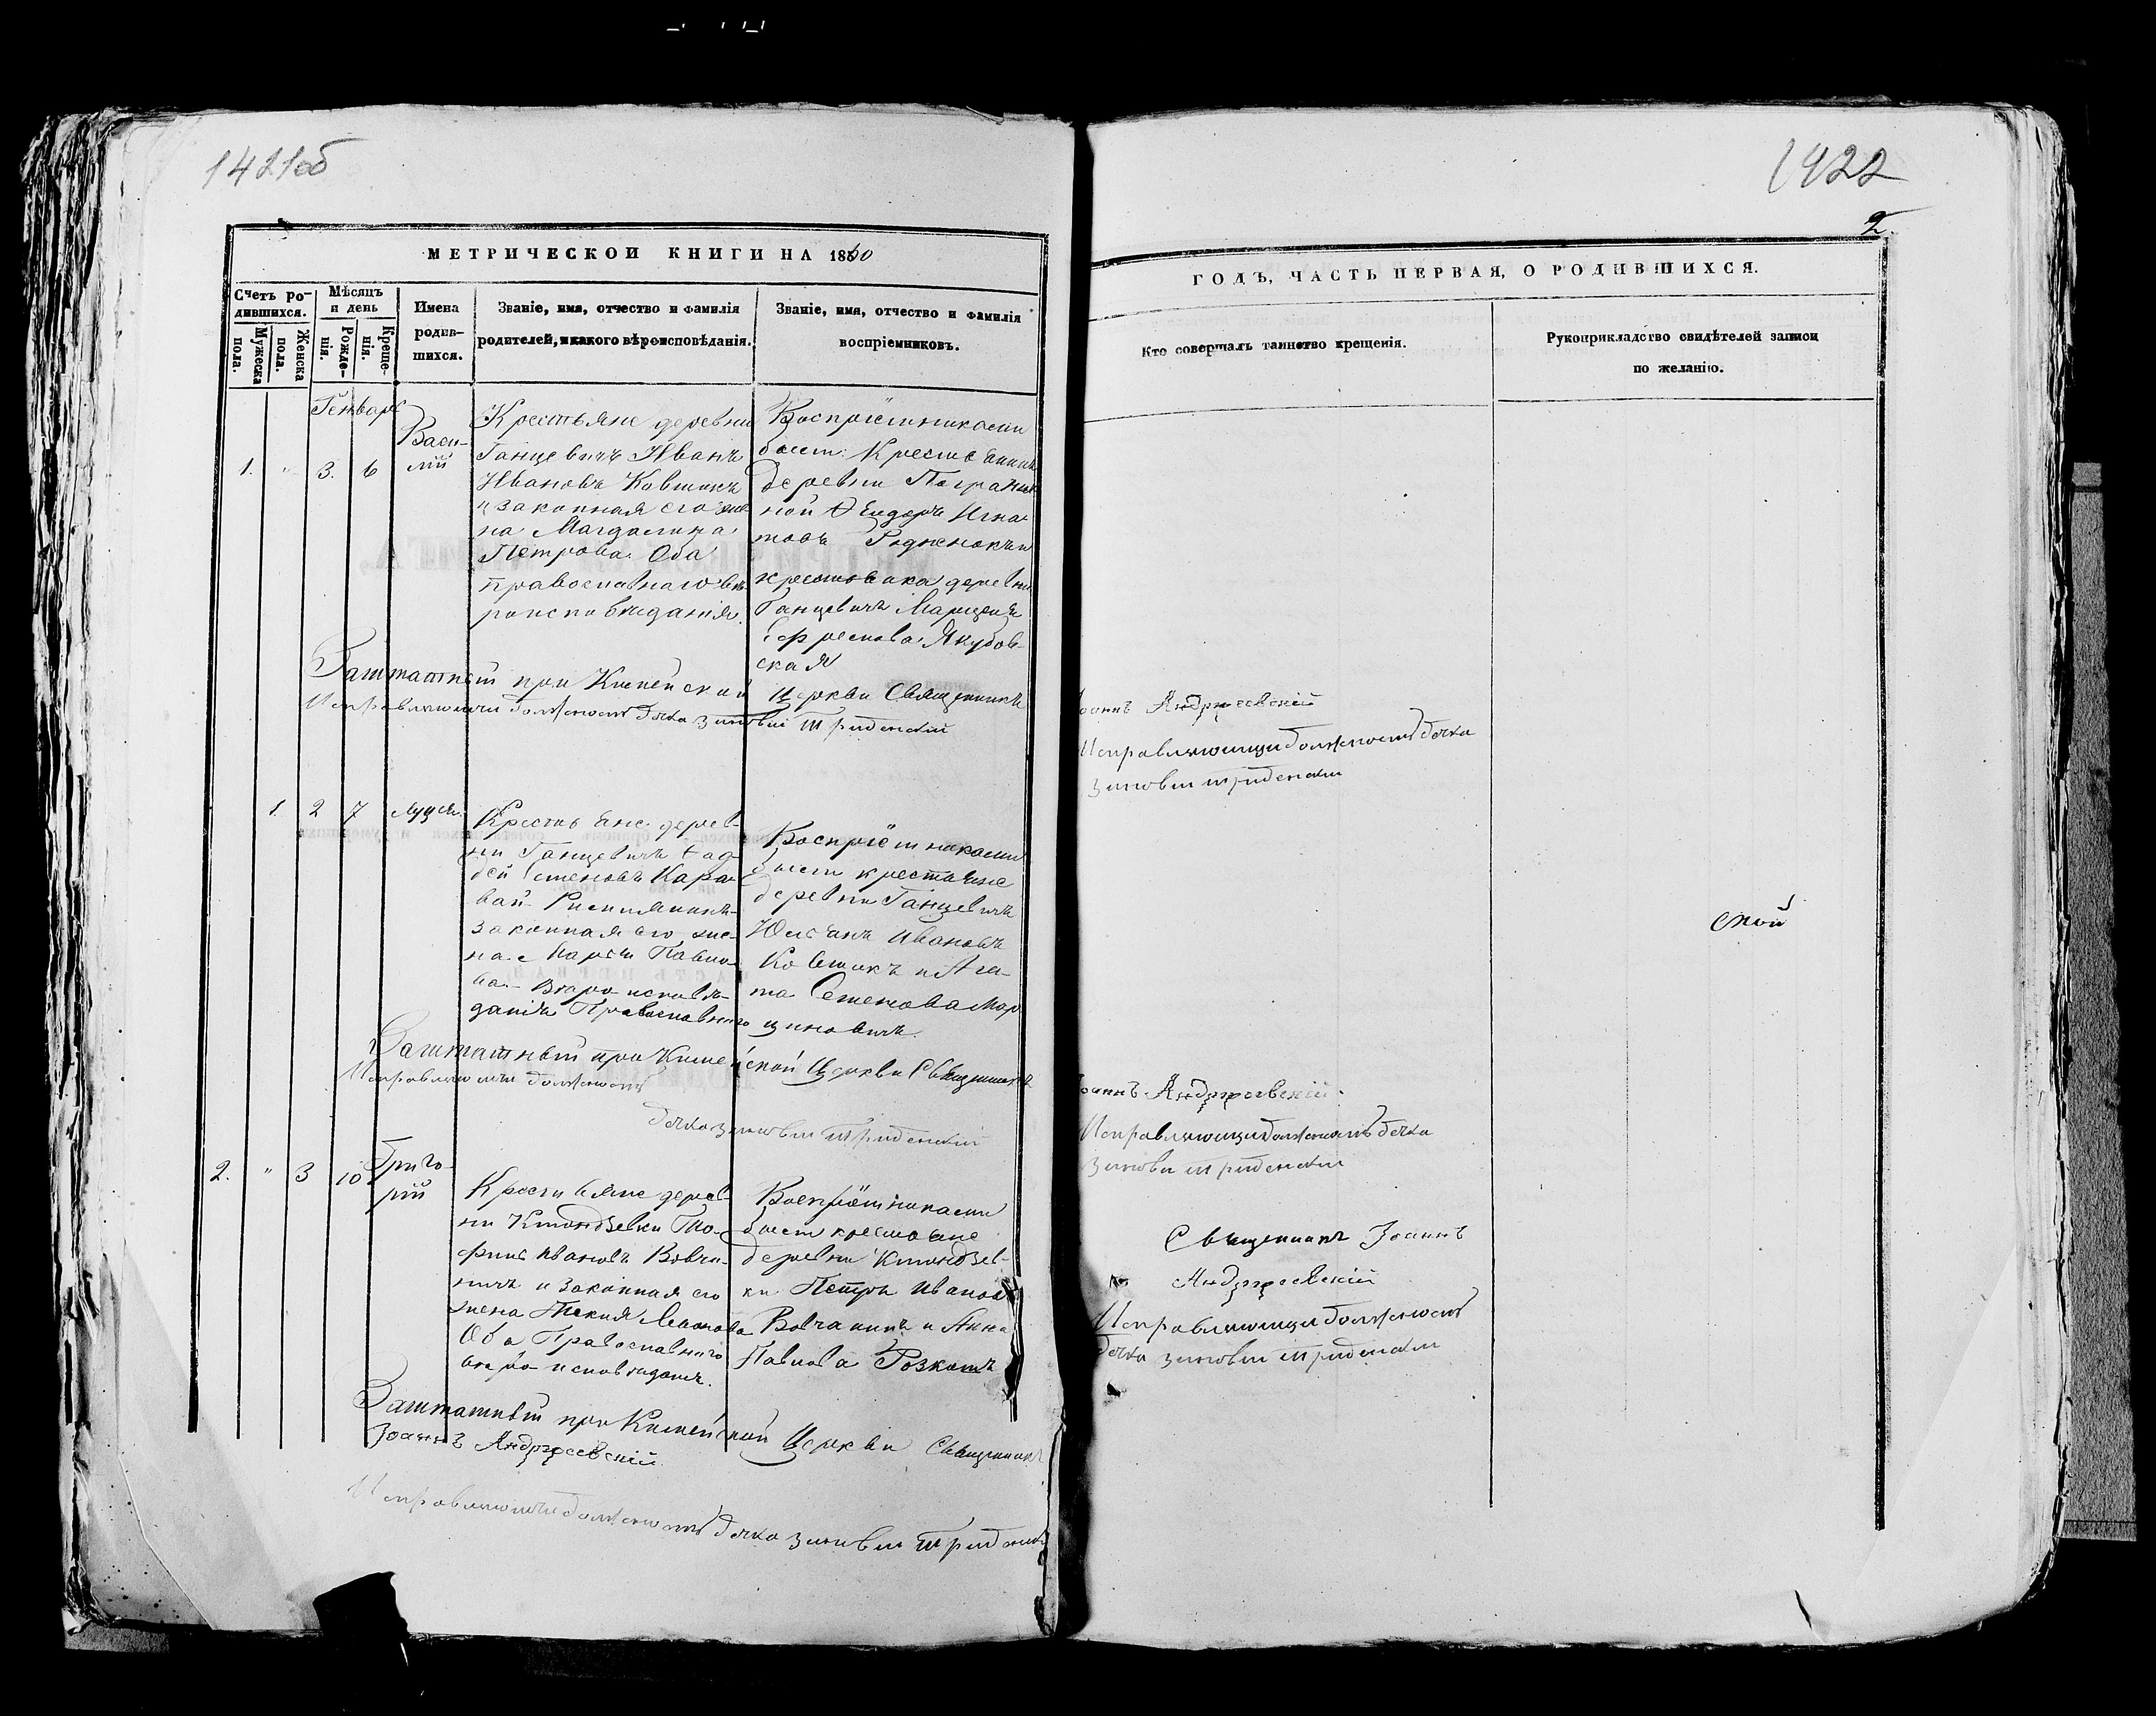 1421об
1422
2.
МЕТРИЧЕСКОЙ КНИГИ НА 1860
ГОДЪ, ЧАСТЬ ПЕРВАЯ, О РОДИВШИХСЯ.
Счетъ ро-
дившихся.
Мужеска
пола.
Женска
пола.
Мѣсяцъ
и день
Рожде-
нія.
Креще-
нія.
Имена
родив-
шихся.
Званіе, имя, отчество и фамилія
родителей, и какого вѣроисповѣданія.
Званіе, имя, отчество и фамилія
воспріемниковъ.
Кто совершалъ таинство крещенія.
Рукоприкладство свидѣтелей записи
по желанію.
Генваря
1. " 3. 6
Васи-
лій
Крестьяне деревни
Ганцевичъ Иванъ
Ивановъ Ковшикъ
и законная его же-
на Магдалина
Петрова Оба
православнаго вѣ-
роисповѣданія.
Воспріемниками
были: Крестьянинъ
деревни Погранич
ной Ѳеодоръ Игна-
товъ
крестьянка деревни
Ганцевичъ
Якубов-
ская
Заштатный при Церкви Священникъ
Іоаннъ Андреевскій
Исправляющій должность дячка Зиновій
Исправляющій должность дячка
Зиновій
1. 2 7
Крестьяне дерев-
ни Ганцевичъ Фад-
дей Семеновъ Кара-
вай
законная его же-
на Павло-
ва Вѣроисповѣ-
данія Православнаго
Воспріемниками
были крестьяне
деревни Ганцевичъ
Юльянъ Ивановъ
Ковшикъ и Ага-
та Семенова Мар
циновичъ.
Заштатный при Церкви Священникъ
Іоаннъ Андреевскій.
Исправляющій должность
дячка Зиновій
Исправляющій должность дячка
Зиновій
ской
2. " 3 10
Григо-
рій
Крестьяне дерев-
ни
Ивановъ Вовча-
нинъ и законная его
жена Текля
Оба Православнаго
вѣроисповѣданія.
Воспріемниками
были крестьяне
деревни
Петръ Ивановъ
Вовчанинъ и Анна
Павлова
Священникъ Іоаннъ
Андреевскій
Исправляющій должность
дячка Зиновій
Заштатный при Церкви Священникъ
Іоаннъ Андреевскій
Исправляющій должность дячка Зиновій